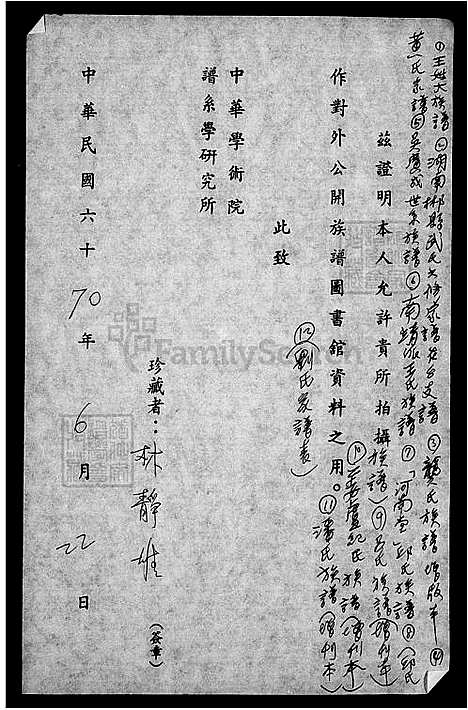 ①王姓大族譜②湖南郴縣武氏六修宗譜③龔氏族譜增版本④
黃氏宗譜⑤吳廣成世系族譜⑥南靖王氏族譜⑦「河南堂」邱氏族譜⑧(邱氏
茲證明本人允許貴所拍攝族譜)⑨呂氏族譜(增刊本)
作對外公開族譜圖書館資料之用。⑩姜盧紀氏族譜(增刊本)
⑪潘氏族譜(增刊本)
⑫(劉氏家譜表)
此致
中華學術院
譜系學研究所
珍藏者:林靜雄(簽章)
中華民國六十70年6月22日
FamilySearch